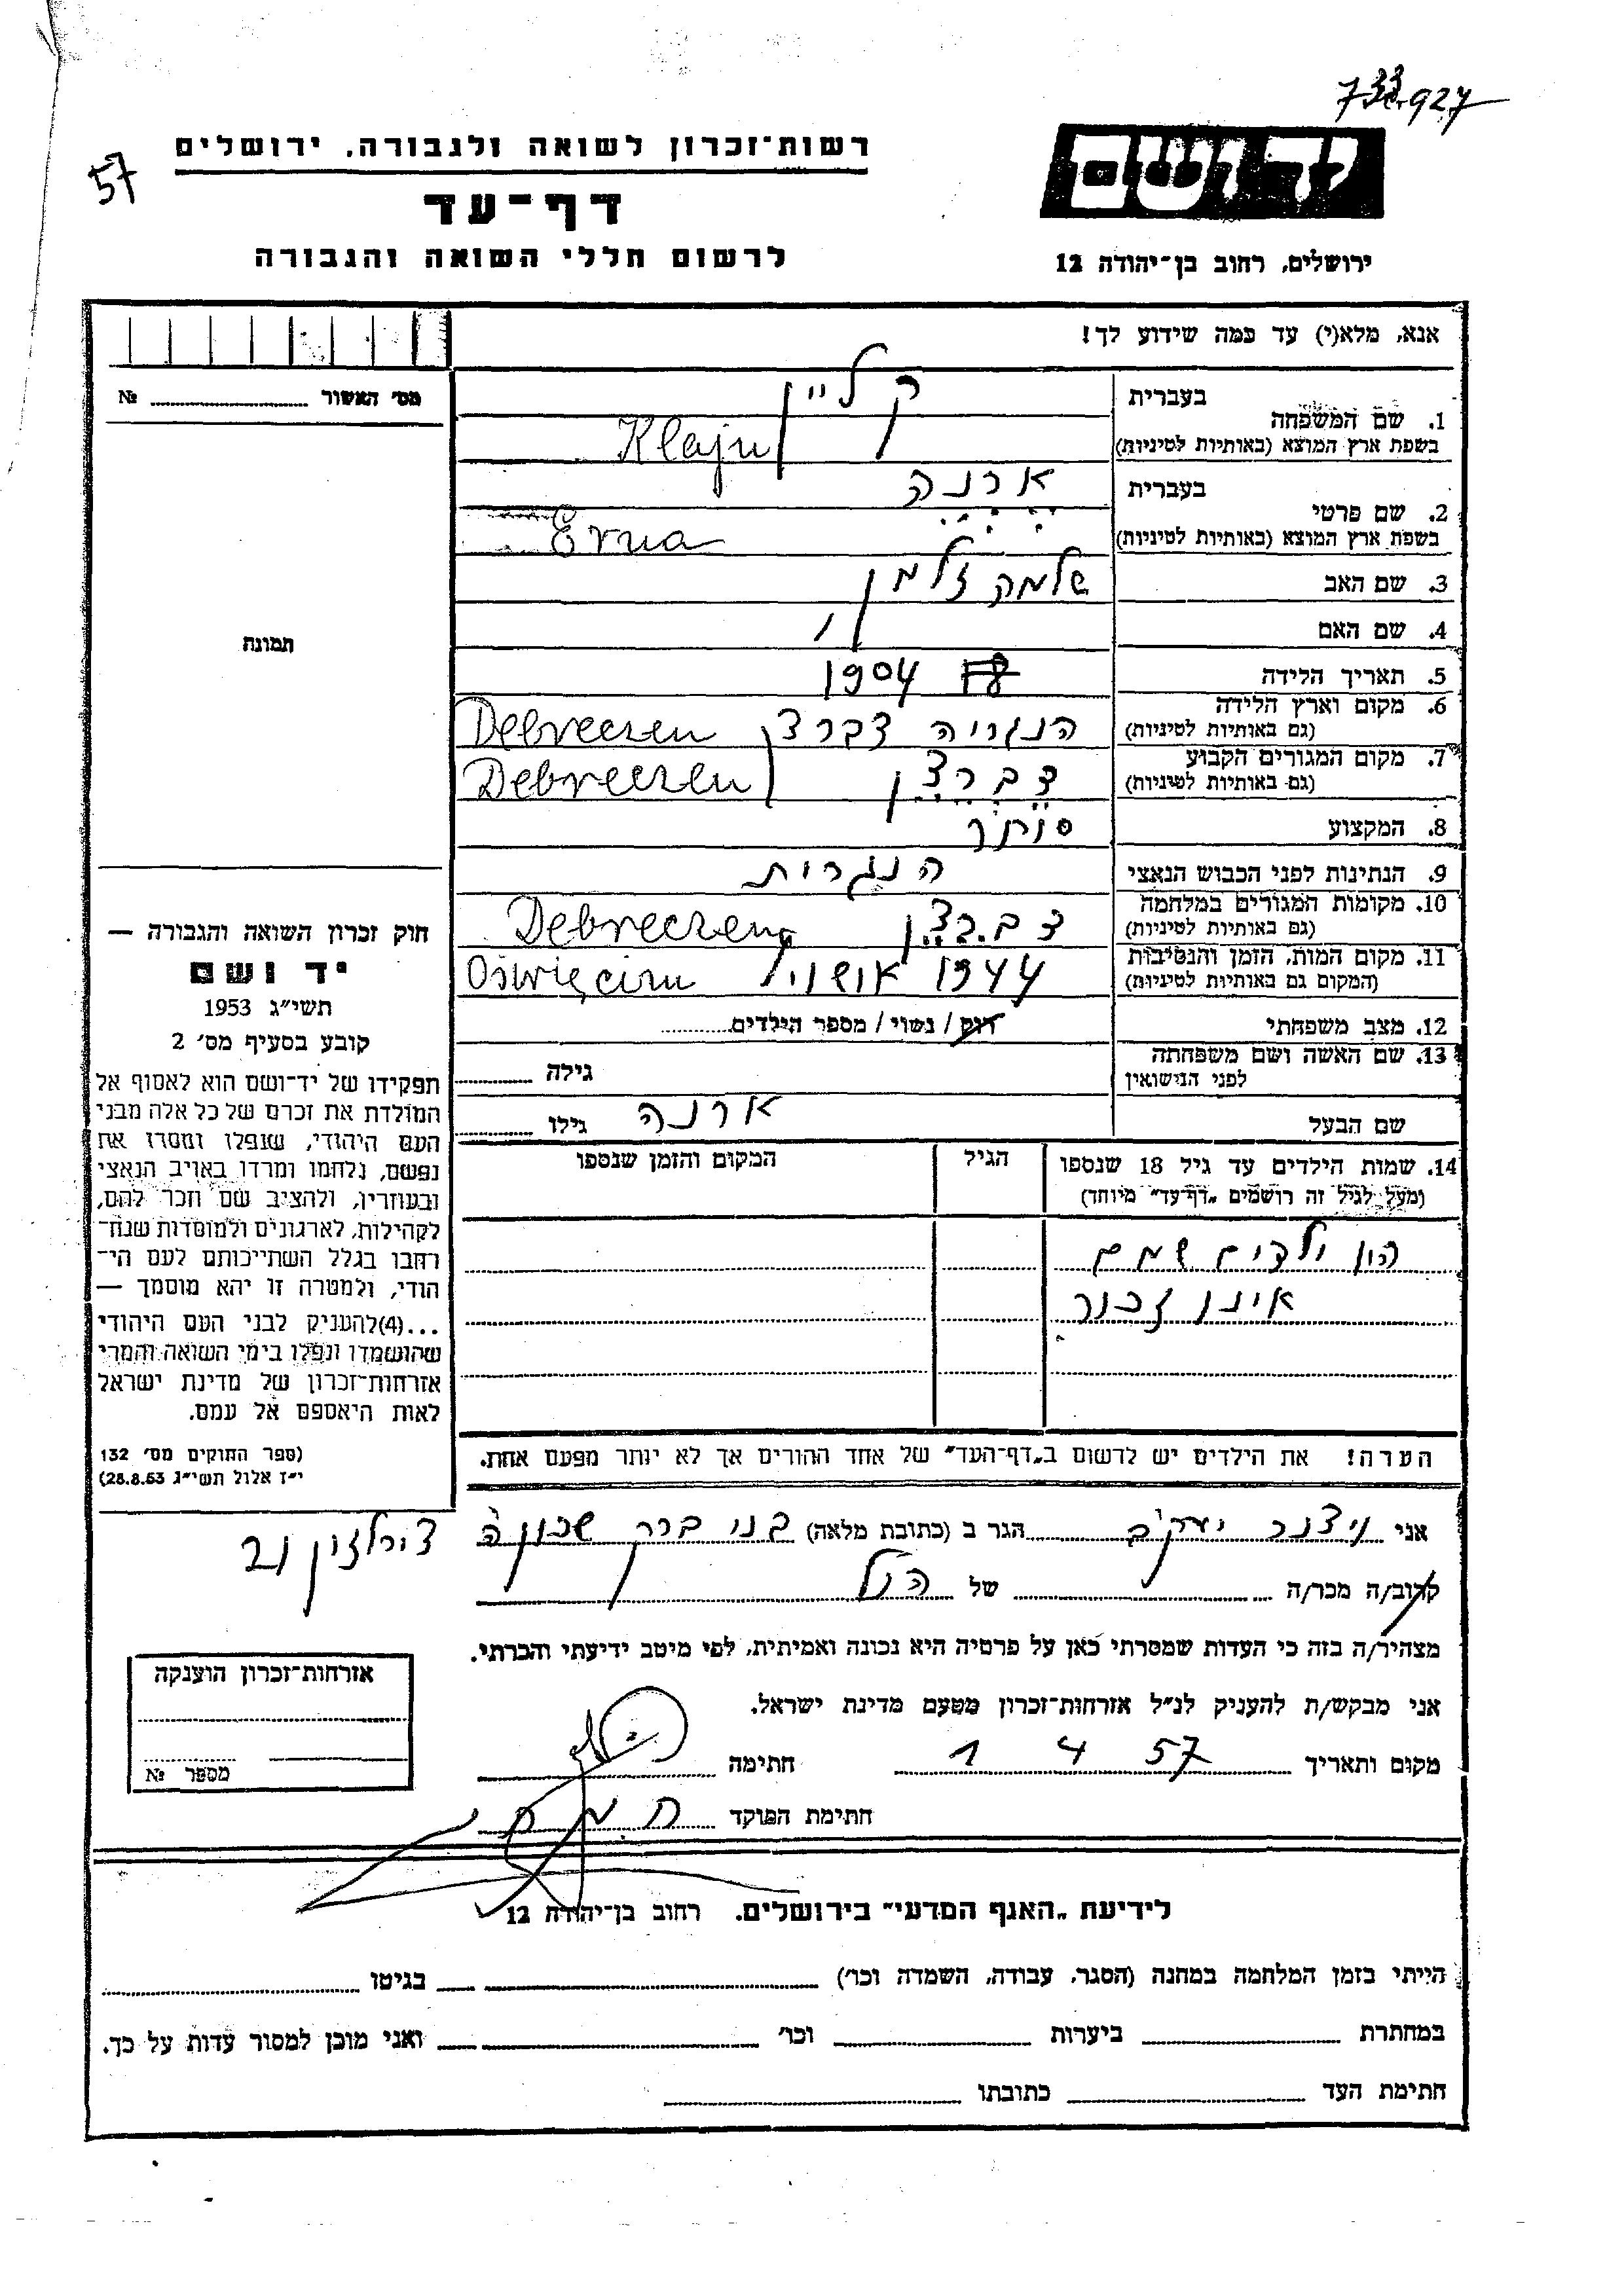 733927
57
רשות־זכרון לשואה ולגבורה, ירושלים
דף־עד
לרשום חללי השואה והגבורה
יד ושם
ירושלים, רחוב בן־יהודה 12
אנא, מלא(י) עד כמה שידוע לך!
מס׳ האשור № 
1. שם המשפחה בעברית קליין
בשפת ארץ המוצא (באותיות לטיניות) Klajn
2. שם פרטי בעברית ארנה
בשפת ארץ המוצא (באותיות לטיניות) Erna
3. שם האב שלמה זלמן
4. שם האם
5. תאריך הלידה 1904
6. מקום וארץ הלידה (גם באותיות לטיניות) הנגריה דברצן Debreczen
7. מקום המגורים הקבוע (גם באותיות לטיניות) דברצן Debreczen
8. המקצוע סוחר
9. הנתינות לפני הכבוש הנאצי הנגרית
10. מקומות המגורים במלחמה (גם באותיות לטיניות) דברצן Debreczen
11. מקום המות, הזמן והנסיבות (המקום גם באותיות לטיניות) 1944 Oświęcim
12. מצב משפחתי רוק / נשוי / מספר הילדים
13. שם האשה ושם משפחתה לפני הנישואין גילה
שם הבעל ארנה גילו
14. שמות הילדים עד גיל 18 שנספו הגיל המקום והזמן שנספו
(מעל לגיל זה רושמים „דף־עד״ מיוחד)
הון ילדים שמם
אינן זכור
הערה! את הילדים יש לרשום ב„דף־העד״ של אחד ההורים אך לא יותר מפעם אחת.
תמונה
חוק זכרון השואה והגבורה —
יד ושם
תשי״ג 1953
קובע בסעיף מס׳ 2
תפקידו של יד־ושם הוא לאסוף אל
המולדת את זכרם של כל אלה מבני
העם היהודי, שנפלו ומסרו את
נפשם, נלחמו ומרדו באויב הנאצי
ובעוזריו, ולהציב שם וזכר להם,
לקהילות, לארגונים ולמוסדות שנח־
רבו בגלל השתייכותם לעם הי־
הודי, ולמטרה זו יהא מוסמך —
...(4)להעניק לבני העם היהודי
שהושמדו ונפלו בימי השואה והמרי
אזרחות־זכרון של מדינת ישראל
לאות היאספם אל עמם.
(ספר החוקים מס׳ 132
י״ז אלול תשי״ג 28.8.53)
אני ויצנר יעקב הגר ב (כתובת מלאה) בני ברק שכונה
קרוב/ה מכר/ה של הנ״ל
מצהיר/ה בזה כי העדות שמסרתי כאן על פרטיה היא נכונה ואמיתית, לפי מיטב ידיעתי והכרתי.
אני מבקש/ת להעניק לנ״ל אזרחות־זכרון מטעם מדינת ישראל.
מקום ותאריך 1 4 57 חתימה
חתימת הפוקד
אזרחות־זכרון הוענקה
מספר №
לידיעת „האגף המדעי״ בירושלים. רחוב בן־יהודה 12
הייתי בזמן המלחמה במחנה (הסגר, עבודה, השמדה וכו׳) בגיטו
במחתרת ביערות וכו׳ ואני מוכן למסור עדות על כך.
חתימת העד כתובתו